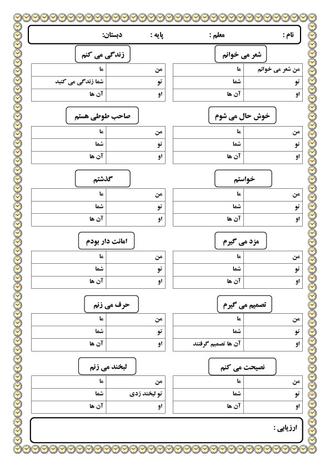 نام : معلم : پایه : دبستان:
شعر می خوانم زندگی می کنم
من شعر می خوانم ما من ما
تو شما تو شما زندگی می کنید
او آن ها او آن ها
خوش حال می شوم صاحب طوطی هستم
من ما من ما
تو شما تو شما
او آن ها او آن ها
خواستم گذشتم
من ما من ما
تو شما تو شما
او آن ها او آن ها
مزد می گیرم امانت دار بودم
من ما من ما
تو شما تو شما
او آن ها او آن ها
تصمیم می گیرم حرف می زنم
من ما من ما
تو شما تو شما
او آن ها تصمیم گرفتند او آن ها
نصیحت می کنم لبخند می زنم
من ما من ما
تو شما تو لبخند زدی شما
او آن ها او آن ها
ارزیابی :